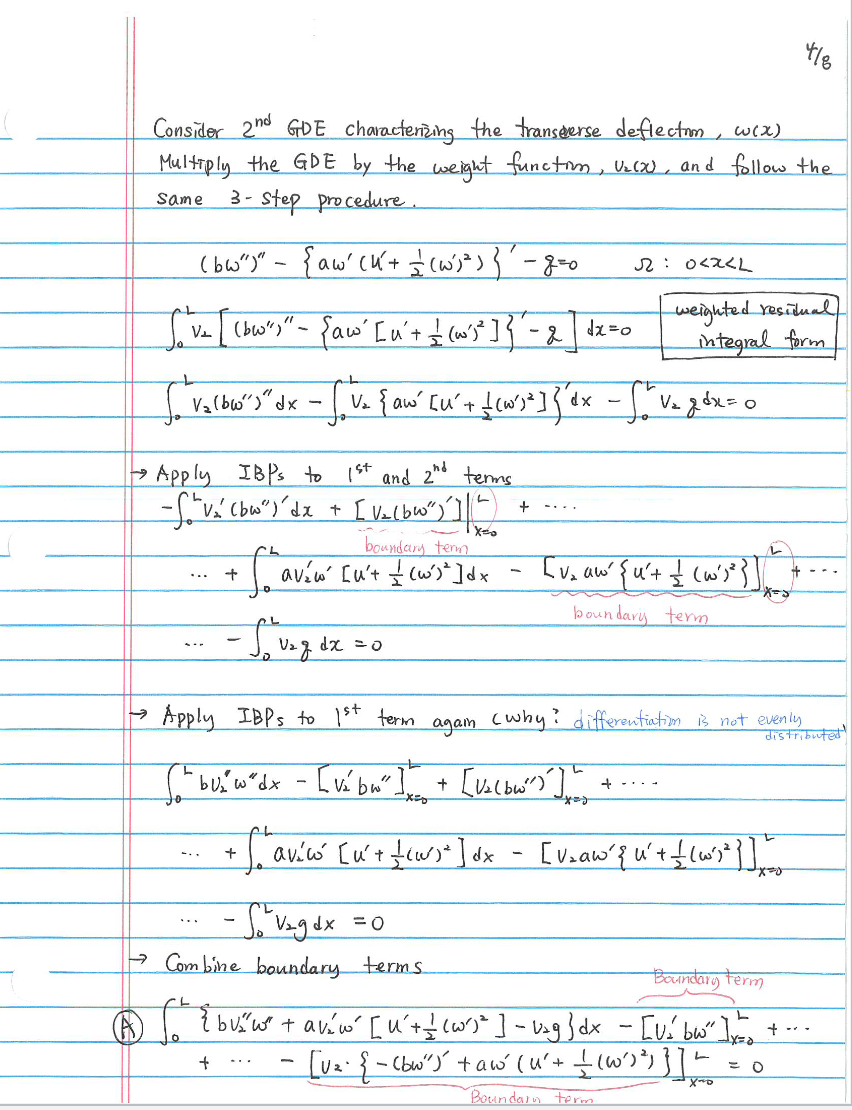 4/8
Consider 2nd GDE characterizing the transverse deflection, w(x)
Multiply the GDE by the weight function, v₂(x), and follow the
same 3-step procedure.
(bw'')'' - {aw'(u' + 1/2 (w')²)}' - q = 0    Ω : 0<x<L
∫₀ᴸ v₂ [(bw'')'' - {aw'[u' + 1/2 (w')²]}' - q] dx = 0
weighted residual
integral form
∫₀ᴸ v₂(bw'')'' dx - ∫₀ᴸ v₂ {aw'[u' + 1/2 (w')²]}' dx - ∫₀ᴸ v₂ q dx = 0
→ Apply IBPs to 1st and 2nd terms
-∫₀ᴸ v₂'(bw'')' dx + [v₂(bw'')']|ₓ₌₀ᴸ + ....
boundary term
... + ∫₀ᴸ av₂'w' [u' + 1/2 (w')²] dx - [v₂ aw' {u' + 1/2 (w')²}]ₓ₌₀ᴸ + ...
boundary term
... - ∫₀ᴸ v₂ q dx = 0
→ Apply IBPs to 1st term again (why? differentiation is not evenly
distributed
∫₀ᴸ bv₂''w'' dx - [v₂' bw'']ₓ₌₀ᴸ + [v₂(bw'')']ₓ₌₀ᴸ + ....
... + ∫₀ᴸ av₂'w' [u' + 1/2 (w')²] dx - [v₂aw'{u' + 1/2 (w')²}]ₓ₌₀ᴸ
... - ∫₀ᴸ v₂q dx = 0
→ Combine boundary terms
Boundary term
Ⓐ ∫₀ᴸ {bv₂''w'' + av₂'w' [u' + 1/2 (w')²] - v₂q}dx - [v₂' bw'']ₓ₌₀ᴸ + ...
+ ... - [v₂· {-(bw'')' + aw'(u' + 1/2 (w')²)}]ₓ₌₀ᴸ = 0
Boundary term